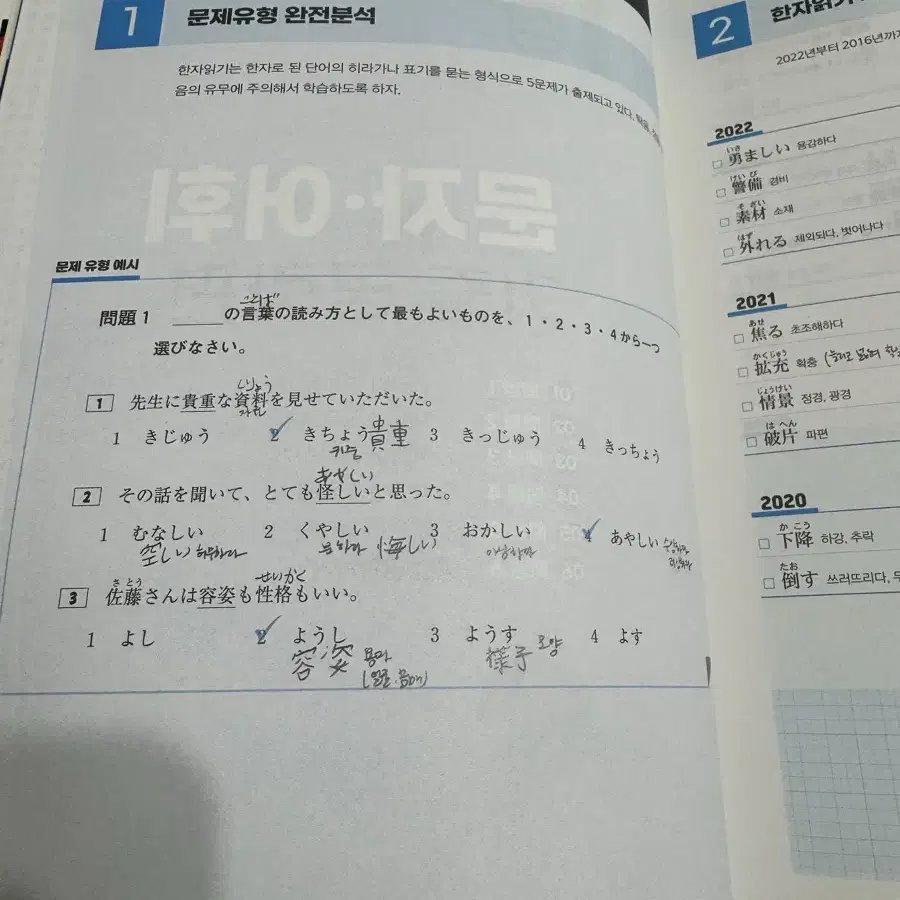 1 문제유형 완전분석
한자읽기는 한자로 된 단어의 히라가나 표기를 묻는 형식으로 5문제가 출제되고 있다.
음의 유무에 주의해서 학습하도록 하자.
문자·어휘
문제 유형 예시
ことば
問題1 ＿＿＿の言葉の読み方として最もよいものを、1・2・3・4から一つ
選びなさい。
しりょう
1 先生に貴重な資料を見せていただいた。
자료
1 きじゅう 2 きちょう 貴重 3 きっじゅう 4 きっちょう
귀중
あやしい
2 その話を聞いて、とても怪しいと思った。
1 むなしい 2 くやしい 3 おかしい 4 あやしい
空しい 허무하다 悔しい
さとう せいかく
3 佐藤さんは容姿も性格もいい。
1 よし 2 ようし 3 ようす 4 よす
容姿 용자 様子 모양
2 한자읽기
2022년부터 2016년까지
2022
いさ
勇ましい 용감하다
けいび
警備 경비
そざい
素材 소재
はず
外れる 제외되다, 벗어나다
2021
あせ
焦る 초조해하다
かくじゅう
拡充 확충
じょうけい
情景 정경, 광경
はへん
破片 파편
2020
かこう
下降 하강, 추락
たお
倒す 쓰러뜨리다,